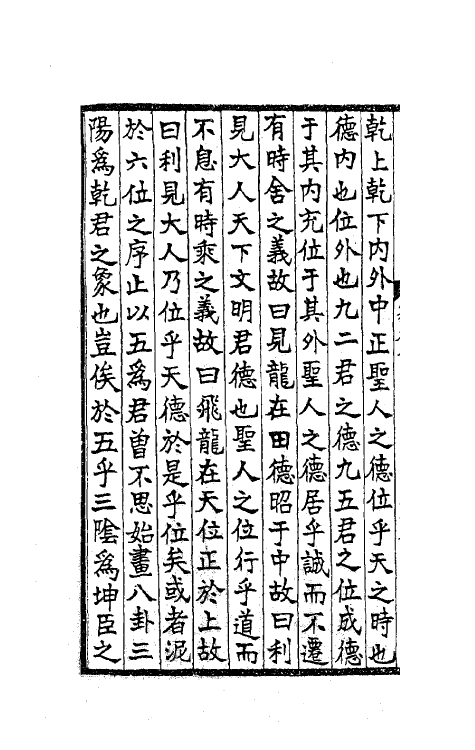 乾上乾下内外中正聖人之德位乎天之時也
德内也位外也九二君之德九五君之位成德
于其内充位于其外聖人之德居乎誠而不遷
有時舍之義故曰見龍在田德昭于中故曰利
見大人天下文明君德也聖人之位行乎道而
不息有時乘之義故曰飛龍在天位正於上故
曰利見大人乃位乎天德於是乎位矣或者泥
於六位之序止以五為君曽不思始畫八卦三
陽為乾君之象也豈俟於五乎三隂為坤臣之